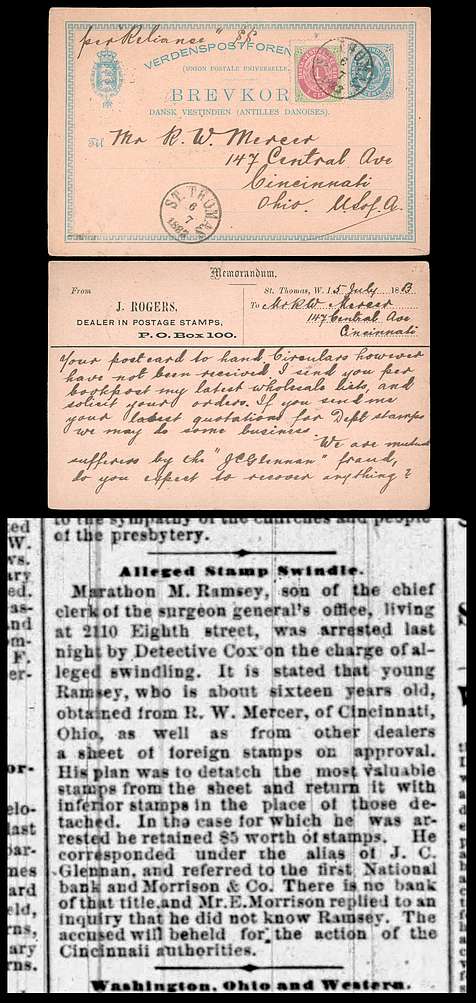 per Reliance" SS
VERDENSPOSTFOREN
(UNION POSTALE UNIVERSELLE
BREVKOR
DANSK VESTINDIEN (ANTILLES DANOISES).
Til Mr R. W. Mercer
147 Central Ave
Cincinnati
Ohio. U.S. of A.
ST. THOMAS
6
7
Memorandum.
From
St. Thomas, W. I 5 July 1883
J. ROGERS,
To Mr R W Mercer
DEALER IN POSTAGE STAMPS,
147 Central Ave
P. O. Box 100.
Cincinnati
Your postcard to hand, Circulars however
have not been received I send you per
bookpost my latest wholesale lists, and
solicit your orders. If you send me
your latest quotations for Dept stamps
we may do some business
We are mutual
sufferers by the "J C Glennan" fraud,
do you expect to recover anything?
to the sympathy of the churches and people
of the presbytery.
Alleged Stamp Swindle.
Marathon M. Ramsey, son of the chief
clerk of the surgeon general's office, living
at 2110 Eighth street, was arrested last
night by Detective Cox on the charge of al-
leged swindling. It is stated that young
Ramsey, who is about sixteen years old,
obtained from R. W. Mercer, of Cincinnati,
Ohio, as well as from other dealers
a sheet of foreign stamps on approval.
His plan was to detatch the most valuable
stamps from the sheet and return it with
inferior stamps in the place of those de-
tached. In the case for which he was ar-
rested he retained $5 worth of stamps. He
corresponded under the alias of J. C.
Glennan, and referred to the first National
bank and Morrison & Co. There is no bank
of that title, and Mr. E. Morrison replied to an
inquiry that he did not know Ramsey. The
accused will be held for the action of the
Cincinnaii authorities.
Washington, Ohio and Western.